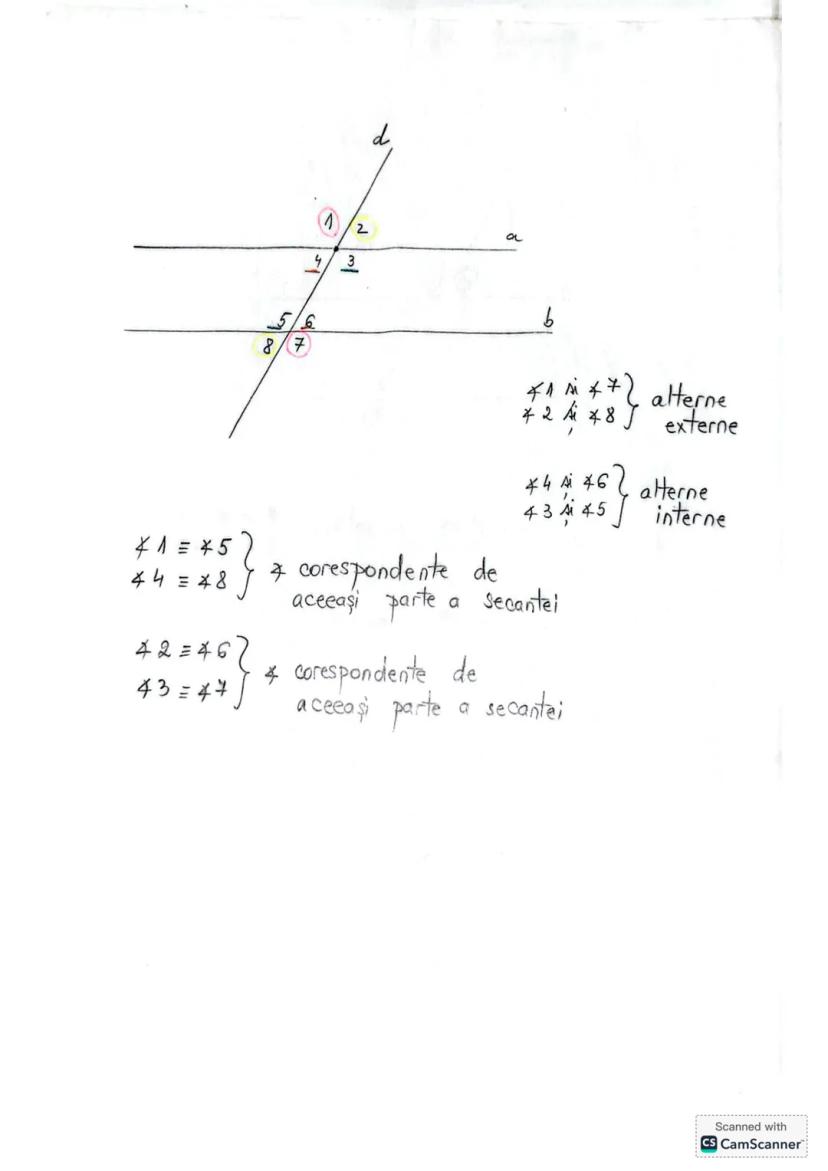 d
1 2
a
4 3
5 6
b
8 7
∢1 și ∢7 } alterne
∢2 și ∢8 } externe
∢4 și ∢6 } alterne
∢3 și ∢5 } interne
∢1 ≡ ∢5
∢4 ≡ ∢8 } ∢ corespondente de
aceeași parte a secantei
∢2 ≡ ∢6
∢3 ≡ ∢7 } ∢ corespondente de
aceeași parte a secantei
Scanned with
CS CamScanner